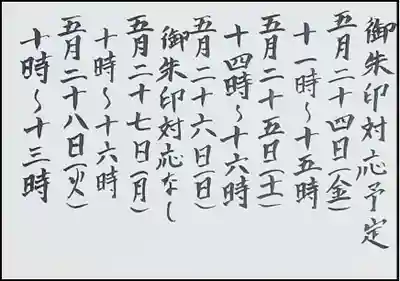 御朱印対応予定
五月二十四日(金)
十一時～十五時
五月二十五日(土)
十四時～十六時
五月二十六日(日)
御朱印対応なし
五月二十七日(月)
十時～十六時
五月二十八日(火)
十時～十三時